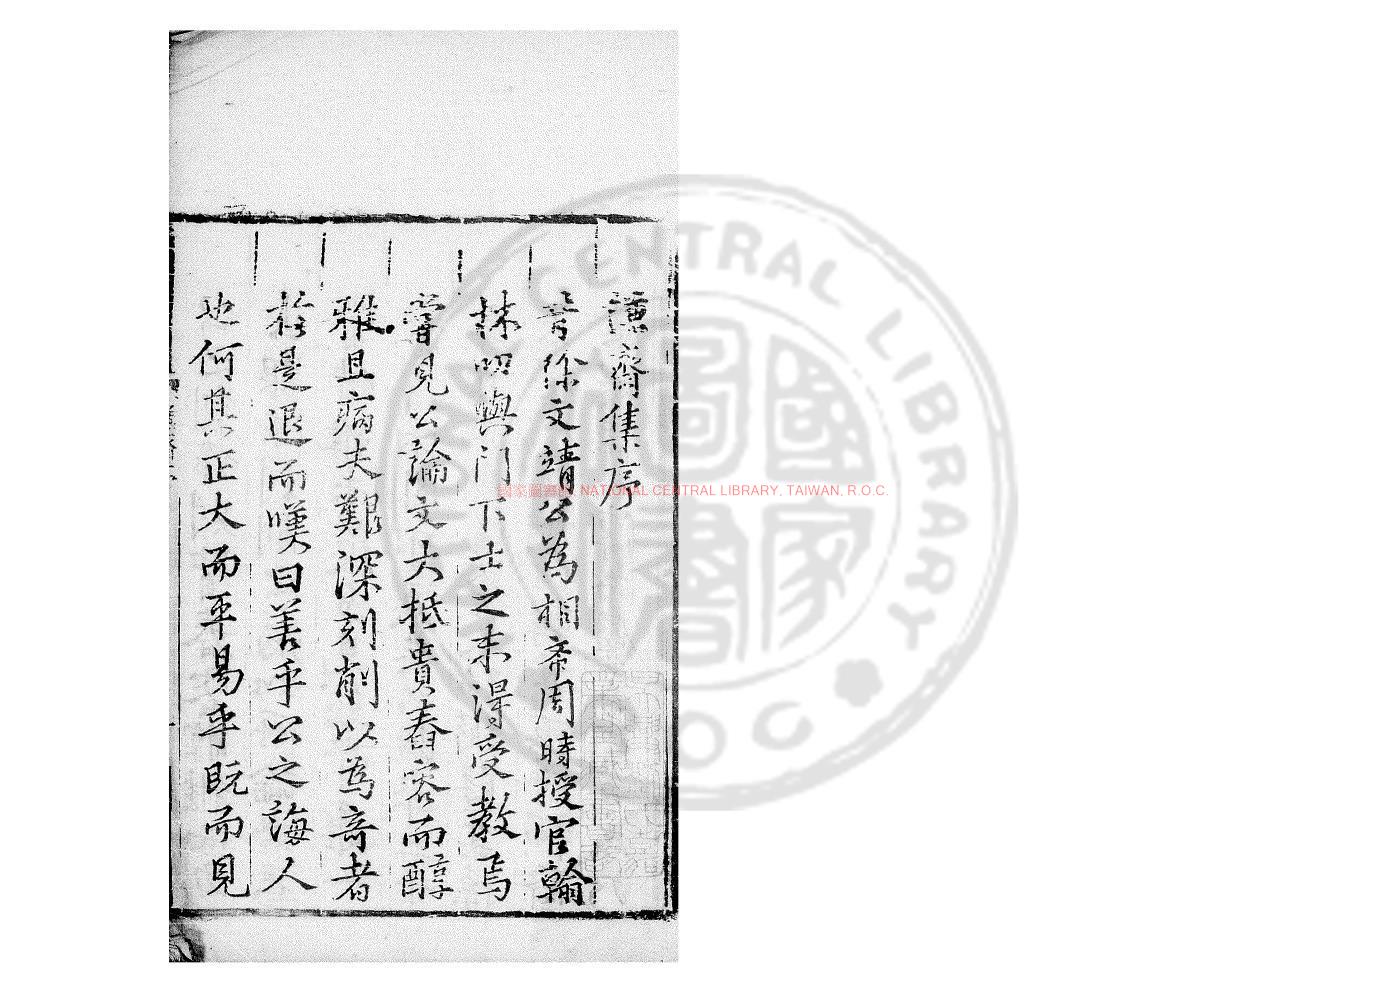 謙齋集序
昔徐文靖公為相希周時授官翰
林叨與門下士之末得受教焉
嘗見公論文大抵貴舂容而醇
雅且病夫艱深刻削以為奇者
於是退而嘆曰善乎公之誨人
也何其正大而平易乎既而見
國家圖書館 NATIONAL CENTRAL LIBRARY, TAIWAN, R.O.C.
NATIONAL CENTRAL LIBRARY
R.O.C.
國家圖書館